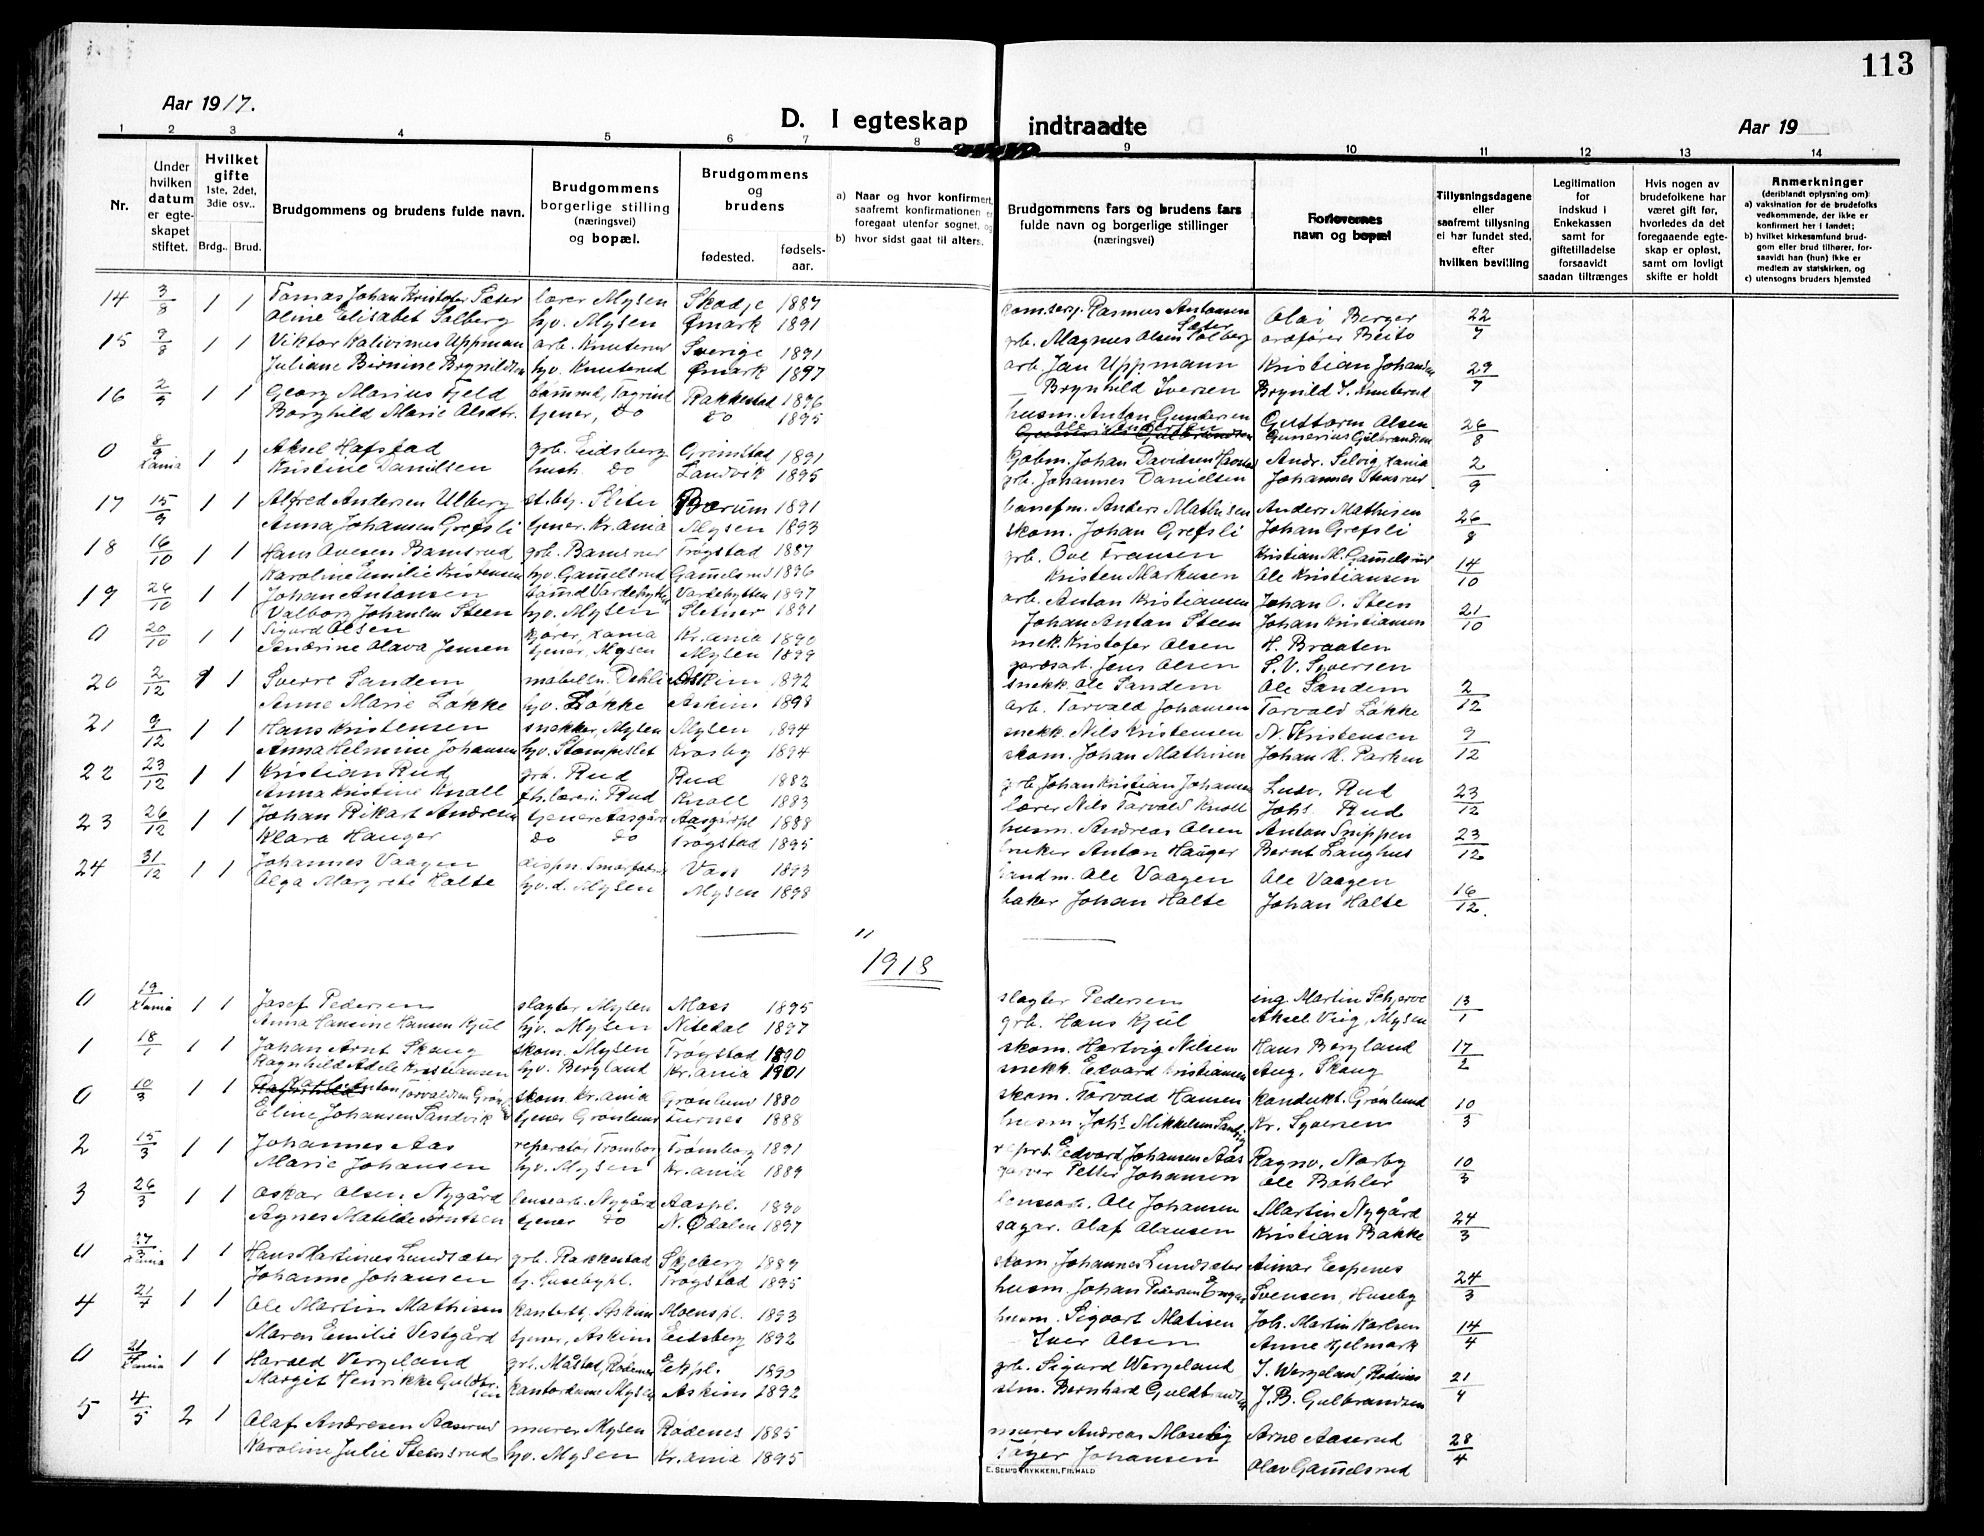 113
Aar 1917.
D. I egteskap indtraadte
Aar 19
1 2 3 4 5 6 7 8 9 10 11 12 13 14
Nr.
Under hvilken datum er egteskapet stiftet.
Hvilket gifte 1ste, 2det, 3die osv..
Brdg.. Brud.
Brudgommens og brudens fulde navn.
Brudgommens borgerlige stilling (næringsvei) og bopæl.
Brudgommens og brudens
fødested. fødsels-aar.
a) Naar og hvor konfirmert, saafremt konfirmationen er foregaat utenfor sognet, og
b) hvor sidst gaat til alters.
Brudgommens fars og brudens fars fulde navn og borgerlige stillinger (næringsvei)
Forlovernes navn og bopæl
Tillysningsdagene eller saafremt tillysning ei har fundet sted, efter hvilken bevilling
Legitimation for indskud i Enkekassen samt for giftetilladelse forsaavidt saadan tiltrænges
Hvis nogen av brudefolkene har været gift før, hvorledes da det foregaaende egteskap er opløst, samt om lovligt skifte er holdt
Anmerkninger
(deriblandt oplysning om)
a) vaksination for de brudefolks vedkommende, der ikke er konfirmert her i landet;
b) hvilket kirkesamfund brudgom eller brud tilhører, forsaavidt han (hun) ikke er medlem av statskirken, og
c) utensogns bruders hjemsted
14 3/8 1 1 Tomas Johan Kristofer Sæter lærer Mysen Skodje 1887 Rasmus Antonsen Sæter Olai Berger 22/7
Oline Elisabet Solberg hv. Mysen Ømark 1891 grb. Magnus Olsen Solberg ordfører Beito
15 9/8 1 1 Viktor Uppman arb. Knuterud Sverige 1891 arb. Jan Uppmann Kristian Johansen 29/7
Juliane Bernine Brynildsen hv. Knuterud Ømark 1897 — Brynhild Iversen Brynild I. Knuterud
16 2/9 1 1 Georg Marius Fjeld Rakkestad 1896 husm. Anton Gundersen Guttorm Olsen 26/8
Borghild Marie Olsdtr. tjener, do do 1895 Ole Andersen Gunerius Gulbrandsen
0 8/9 Kania 1 1 Aksel Hafstad grb. Eidsberg Grimstad 1891 kjøbm. Johan Davidsen Andr. Selvig, Kania 2/9
Kristine Danilsen hush. do Landvik 1895 grb. Johannes Danielsen Johannes Stensrud
17 15/9 1 1 Alfred Andersen Ulberg st.btj. Sliter Bærum 1891 banefm. Anders Mathisen Anders Mathisen 26/8
Anna Johansen Grefsli tjener Kr.ania Mysen 1893 skom. Johan Grefsli Johan Grefsli
18 16/10 1 1 Hans Ovesen Bamsrud grb. Bamsrud Trøgstad 1887 grb. Ove Fransen Kristian M. Gamelsrud 14/10
Karoline Emilie Kristensen hv. Gamelsrud Gamelsrud 1896 Kristen Markusen Ole Kristiansen
19 26/10 1 1 Johan Antonsen Vardehytten Vardehytten 1897 arb. Anton Kristiansen Johan O. Steen 21/10
Valborg Johansen Steen hv. Mysen Sletner 1891 Johan Anton Steen Johan Kristiansen
0 20/10 1 1 Sigurd Olsen kjører, Kania Kr.ania 1890 mek. Kristofer Olsen H. Braaten
Sendrine Olava Jensen tjener, Mysen Mysen 1899 gardsarb. Jens Olsen S.V. Syversen
20 2/12 1 1 Sverre Sandem Askim 1892 snekk. Ole Sandem Ole Sandem 2/12
Anne Marie Løkke hv. Løkke Askim 1898 arb. Torvald Johansen Torvald Løkke
21 9/12 1 1 Hans Kristensen snekker, Mysen Mysen 1894 snekk. Nils Kristensen N. Kristensen 9/12
Anna Helmine Johansen hv. Stompeslet Krosby 1894 skom. Johan Mathisen Johan M. Parken
22 23/12 1 1 Kristian Rud grb. Rud Rud 1882 grb. Johan Kristian Johansen Ludv. Rud 23/12
Anna Kristine Knoll fh.læreri. Rud Knoll 1883 lærer Nils Torvald Knoll Johs. Rud
23 26/12 1 1 Johan Rikart Andresen tjener Aasgård Aasgårdpl 1888 husm. Andreas Olsen Anton Snippen 23/12
Klara Hauger do do Trøgstad 1895 bruker Anton Hauger Bernt Langhus
24 31/12 1 1 Johannes Vaagen Voss 1893 landm. Ole Vaagen Ole Vaagen 16/12.
Olga Margrete Holte hv.d. Mysen Mysen 1898 baker Johan Holte Johan Holte
"
1918
0 19/ Kania 1 1 Josef Pedersen slagter Mysen Moss 1895 slagter Pedersen ing. Martin Schjerve 13/1
Anna Hansine Hansen Kjul hv. Mysen Nitedal 1897 grb. Hans Kjul Aksel Vrig, Mysen
1 18/1 1 1 Johan Arnt Skaug skom. Mysen Trøgstad 1890 skom. Hartvig Nilsen Hans Bergland 17/2
Ragnhild Adele Kristiansen hv. Bergland Kr.ania 1901 snekk. Edvard Kristiansen Aug. Skaug
0 10/3 1 1 Anton Torvaldsen skom. Kr.ania Grønlund 1880 skom. Torvald Hansen kondukt. Grønlund 10/3
Eline Johansen Sandvik tjener Grønlund Furnes 1888 husm. Johs. Mikkelsen Sandvig Kr. Syversen
2 15/3 1 1 Johannes Aas reparatør Tromborg Trømborg 1891 reprt. Edvard Johansen Aas Ragnv. Norby 10/3
Marie Johansen hv. Mysen Kr.ania 1889 garver Petter Johansen Ole Bøhler
3 26/3 1 1 Oskar Olsen Nygård Nygård Aaspl. 1890 Ole Johansen Martin Nygård 24/3
Agnes Matilde Arntsen tjener do N. Ødalen 1897 sagar. Olaf Olausen Kristian Bakke
0 27/3 Kania 1 1 Hans Martinus Lundsæter grb. Rakkestad Skjeberg 1889 skom. Johannes Lundsæter Aimar Espenes 24/3
Johanne Johansen tj. Husebypl. Trøgstad 1895 husm. Johan Pedersen Svensen, Huseby
4 21/4 1 1 Ole Martin Mathisen kontorb. Askim Moenspl. 1893 husm. Sigvart Matisen Joh. Martin Karlsen 14/4
Maren Emilie Vestgård tjener, Askim Eidsberg 1892 — Iver Olsen Anne Hjelmark
0 21/4 Kania 1 1 Harald Vergeland grb. Måstad, Rødenes Eikpl. 1890 grb. Sigurd Wergeland S. Wergeland, Rødenes 21/4
Margit Henrikke Guldbr. kontordame Mysen Askim 1892 stm. Bernhard Guldbrandsen J.B. Gulbrandsen
5 4/5 2 1 Olaf Andresen Aaserud murer Mysen Rødenes 1885 murer Andreas Moseby Arne Aaserud 28/4
Karoline Julie Stensrud hv. Mysen Kr.ania 1895 Johansen Olav Gamelsrud
E. SEM'S TRYKKERI, FR.HALD